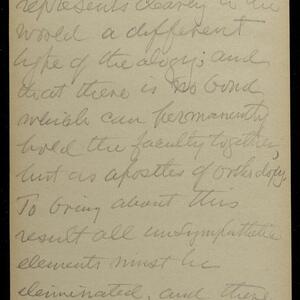 represents clearly to the
world a different
type of theology; and
that there is no bond
which can permanently
hold the faculty together,
but as apostles of orthodoxy.
To bring about this
result all unsympathetic
elements must be
eliminated, and there